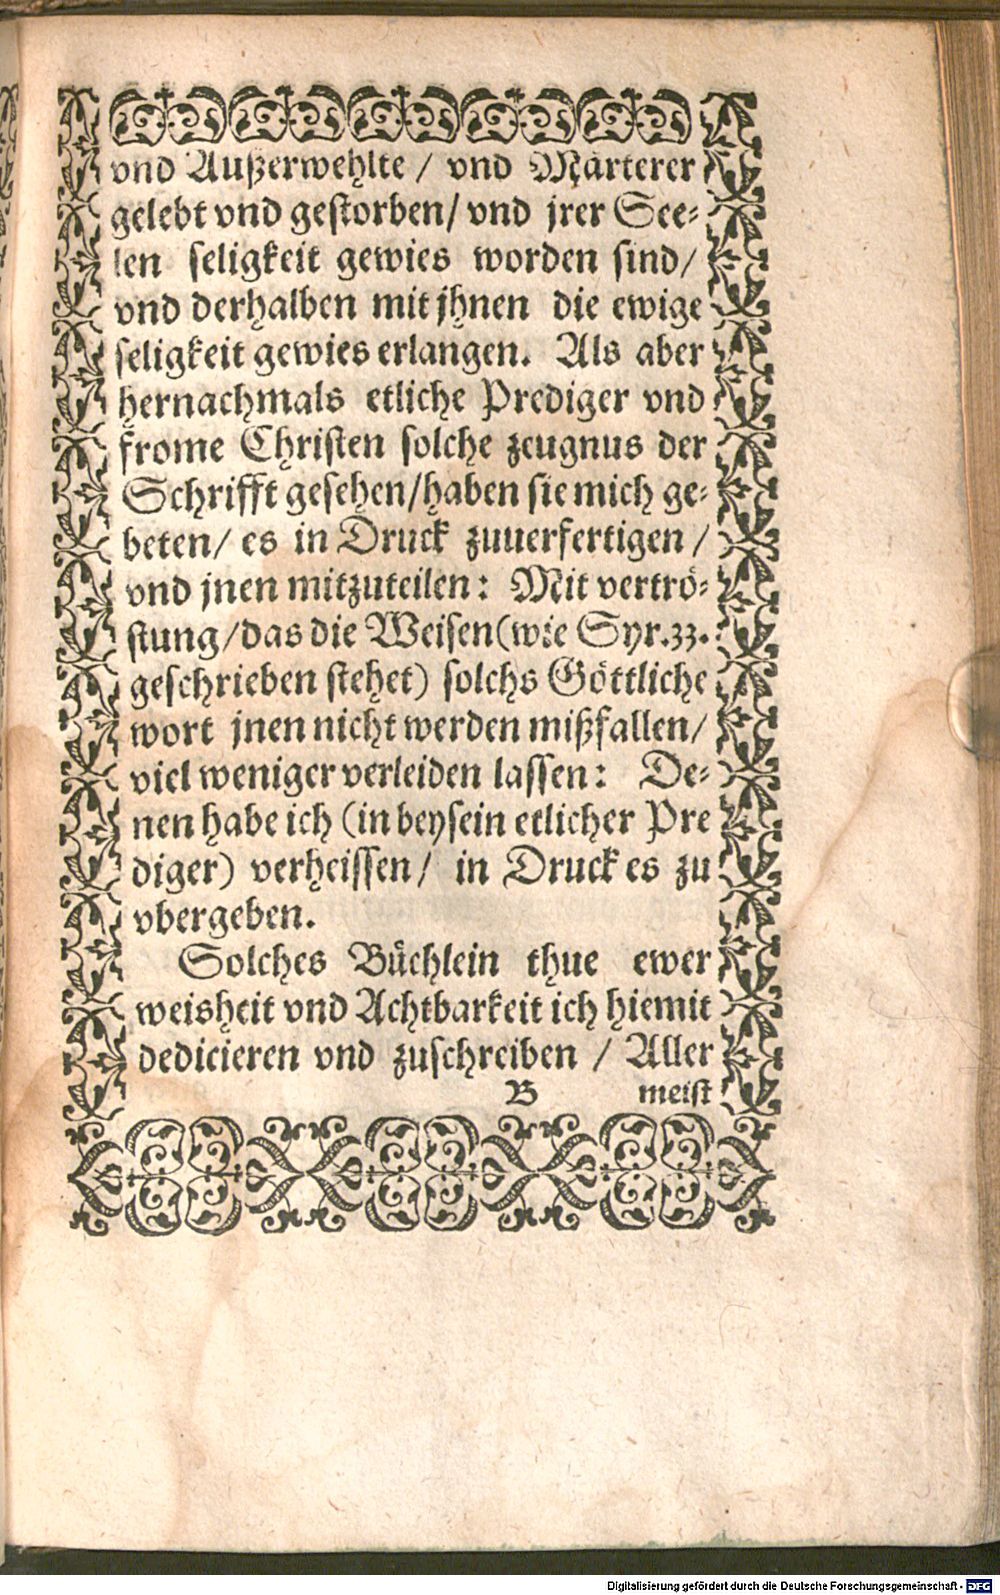 vnd Außerwehlte / vnd Märterer
gelebt vnd gestorben/ vnd jrer See-
len seligkeit gewies worden sind/
vnd derhalben mit jhnen die ewige
seligkeit gewies erlangen. Als aber
hernachmals etliche Prediger vnd
frome Christen solche zeugnus der
Schrifft gesehen/haben sie mich ge-
beten/ es in Druck zuuerfertigen /
vnd jnen mitzuteilen: Mit vertrö-
stung/das die Weisen(wie Syr.33.
geschrieben stehet) solchs Göttliche
wort jnen nicht werden mißfallen/
viel weniger verleiden lassen: De-
nen habe ich (in beysein etlicher Pre
diger) verheissen/ in Druck es zu
vbergeben.
Solches Büchlein thue ewer
weisheit vnd Achtbarkeit ich hiemit
dedicieren vnd zuschreiben / Aller
B meist
Digitalisierung gefördert durch die Deutsche Forschungsgemeinschaft - DFG